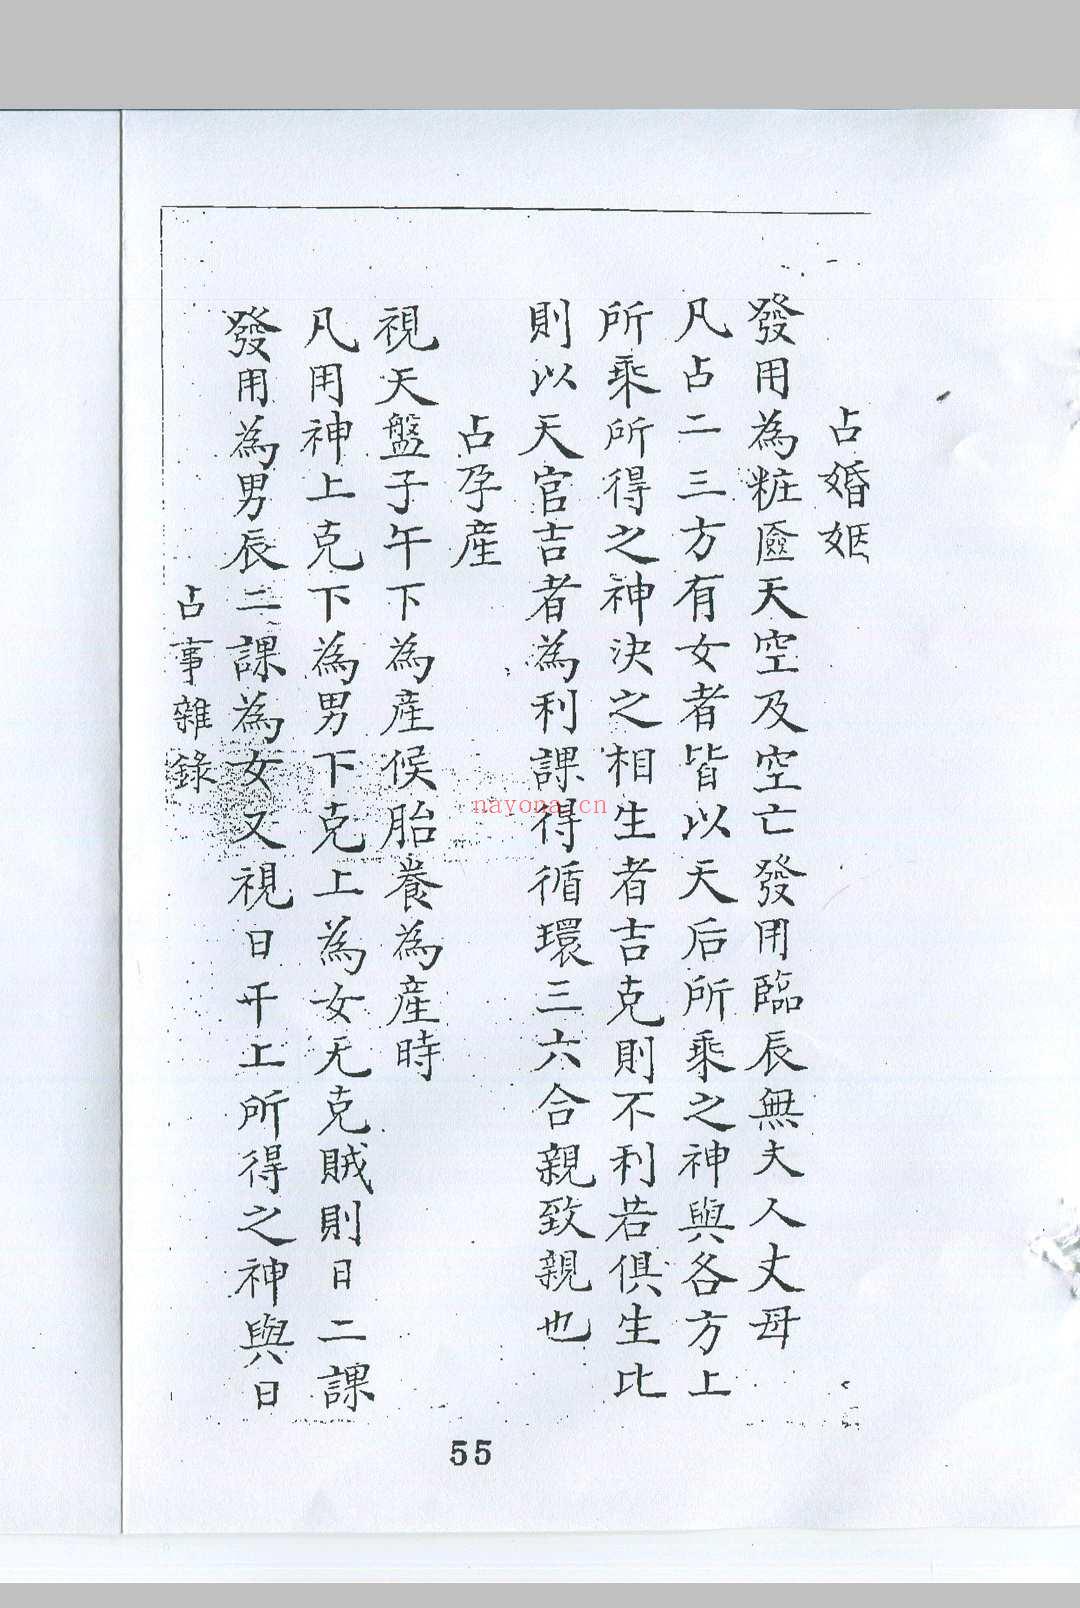 占婚姻
發用為粧匳天空及空亡發用臨辰無夫人丈母
凡占二三方有女者皆以天后所乘之神與各方上
所乘所得之神決之相生者吉克則不利若俱生比
則以天官吉者為利課得循環三六合親致親也
占孕產
視天盤子午下為產候胎養為產時
凡用神上克下為男下克上為女无克賊則日二課
發用為男辰二課為女又視日干上所得之神與日
占事雜錄
nayona.cn
55